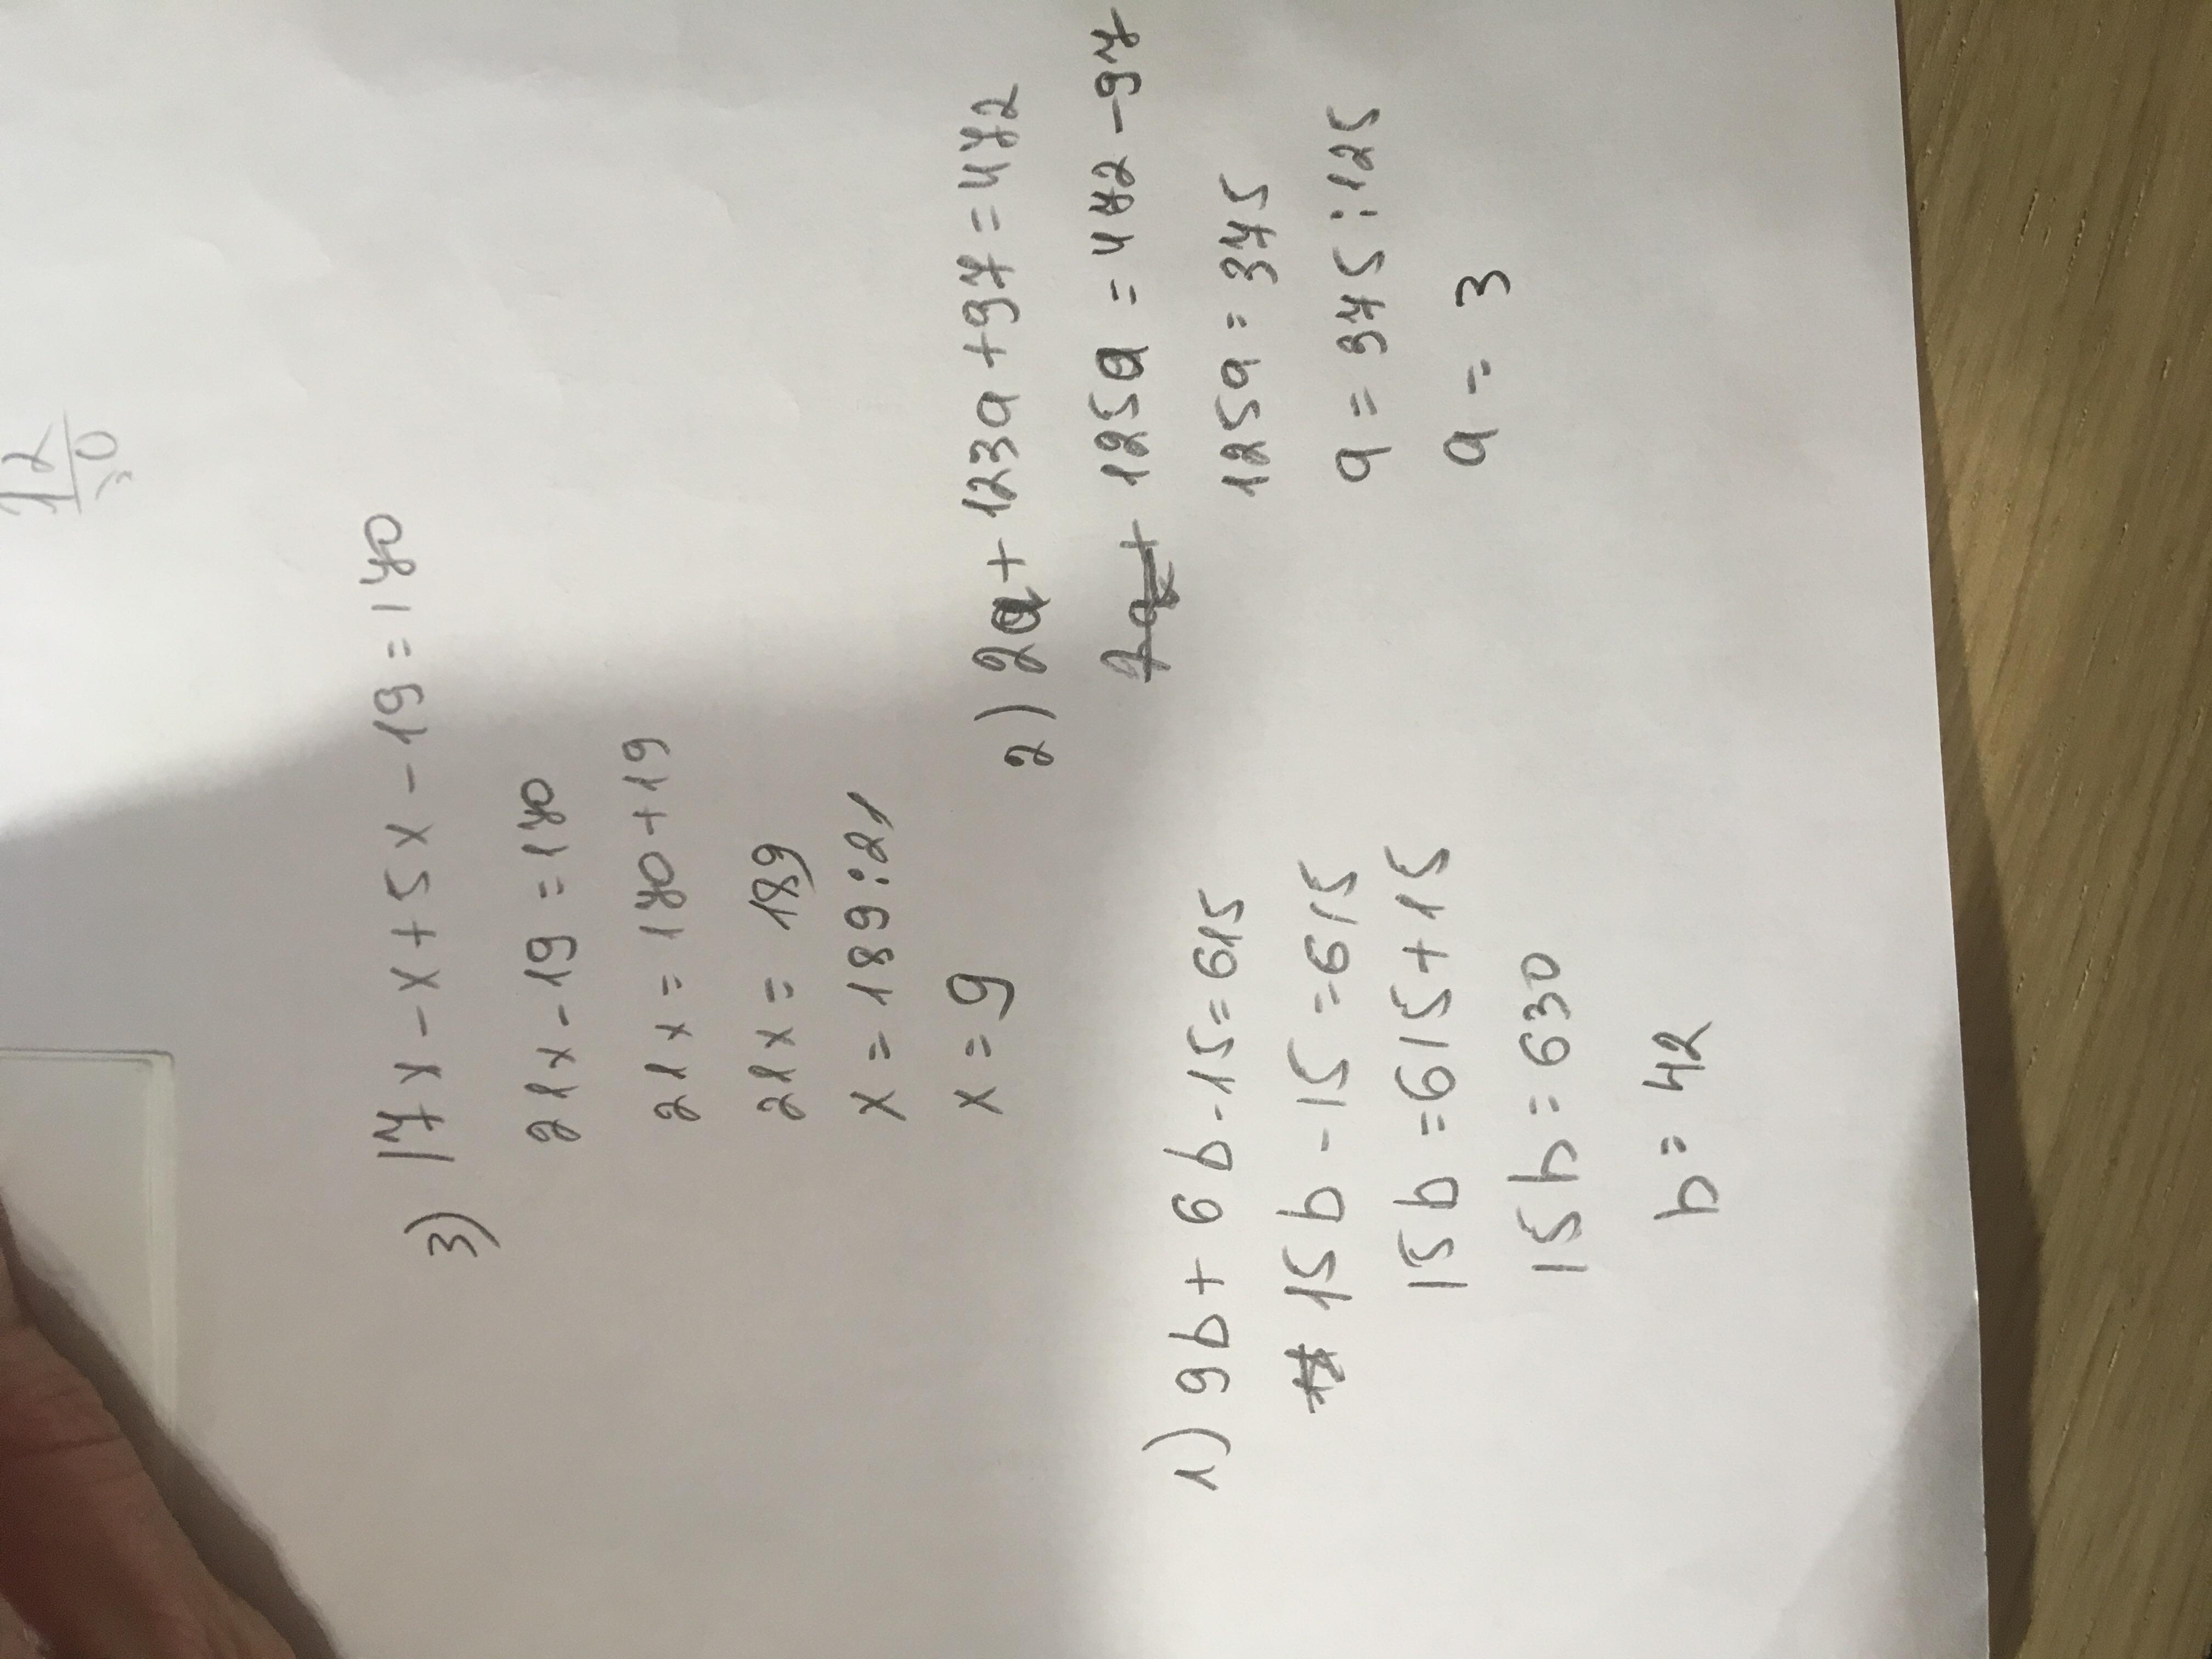 12
3) 17x-x+5x-19=170
21x-19=170
21x=170+19
21x=189
x=189:21
x=9
2) 2a+123a+97=472
125a=472-97
125a=375
a=375:125
a=3
1) 9b+6b-15=615
15b-15=615
15b=615+15
15b=630
b=42